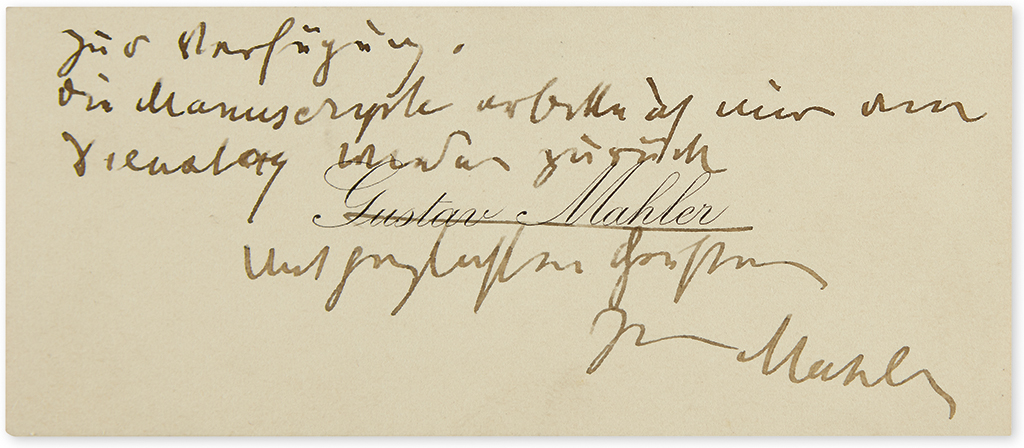 zur Verfügung.
die Manuscripte erbitte ich mir am
Dienstag wieder zurück
Gustav Mahler
Mit herzlichsten Grüßen
Ihr Mahler